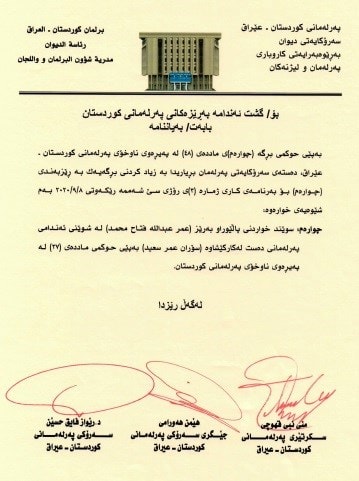 پەرلەمانی کوردستان - عێراق
سەرۆکایەتی دیوان
بەڕێوەبەرایەتی کاروباری
پەرلەمان و لیژنەکان
برلمان كوردستان - العراق
رئاسة الديوان
مديرية شؤون البرلمان واللجان
بۆ/ گشت ئەندامە بەڕێزەکانی پەرلەمانی کوردستان
بابەت/ بەیاننامە
بەپێی حوکمی بڕگە (چوارەم)ی ماددەی (٤٨) لە پەیڕەوی ناوخۆی پەرلەمانی کوردستان -
عێراق، دەستەی سەرۆکایەتی پەرلەمان بڕیاریدا بە زیاد کردنی بڕگەیەك بە ڕێزبەندی
(چوارەم) بۆ بەرنامەی کاری ژمارە (٢)ی ڕۆژی سێ شەممە ڕێکەوتی ٢٠٢٠/٩/٨ بەم
شێوەیەی خوارەوە:
چوارەم: سوێند خواردنی پاڵێوراو بەڕێز (عمر عبدالله فتاح محمد) لە شوێنی ئەندامی
پەرلەمانی دەست لەکارکێشاوە (سۆران عمر سعید) بەپێی حوکمی ماددەی (٢٧) لە
پەیڕەوی ناوخۆی پەرلەمانی کوردستان.
لەگەڵ ڕێزدا
منى نبي قهوچي
سکرتێری پەرلەمانی
کوردستان - عێراق
هێمن هەورامی
جێگری سەرۆکی پەرلەمانی
کوردستان - عێراق
د.ڕێواز فایق حسێن
سەرۆکی پەرلەمانی
کوردستان - عێراق